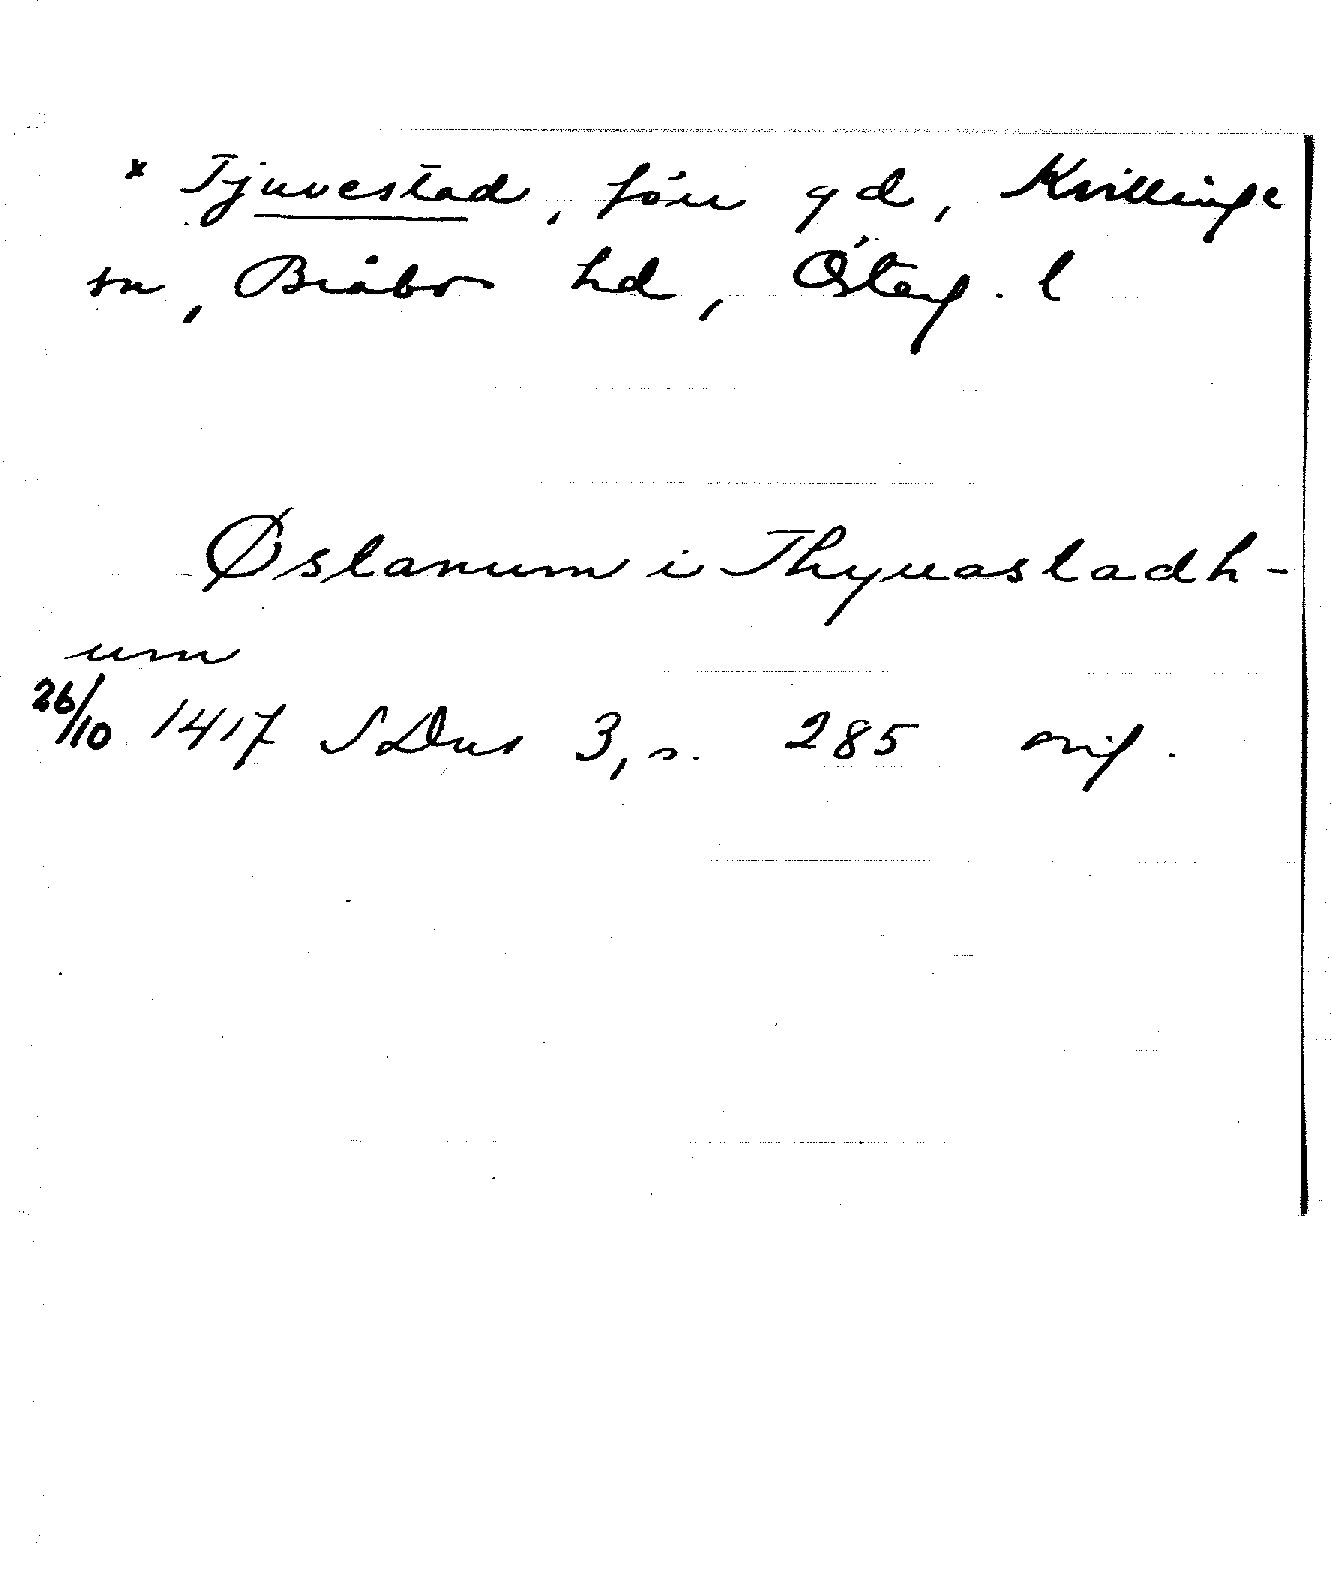 * Tjuvestad, förr gd, Kvillinge
sn, Bråbo hd, Österg. l
Østanum i Thyuastadh-
um
26/10 1417 SDns 3, s. 285 orig.